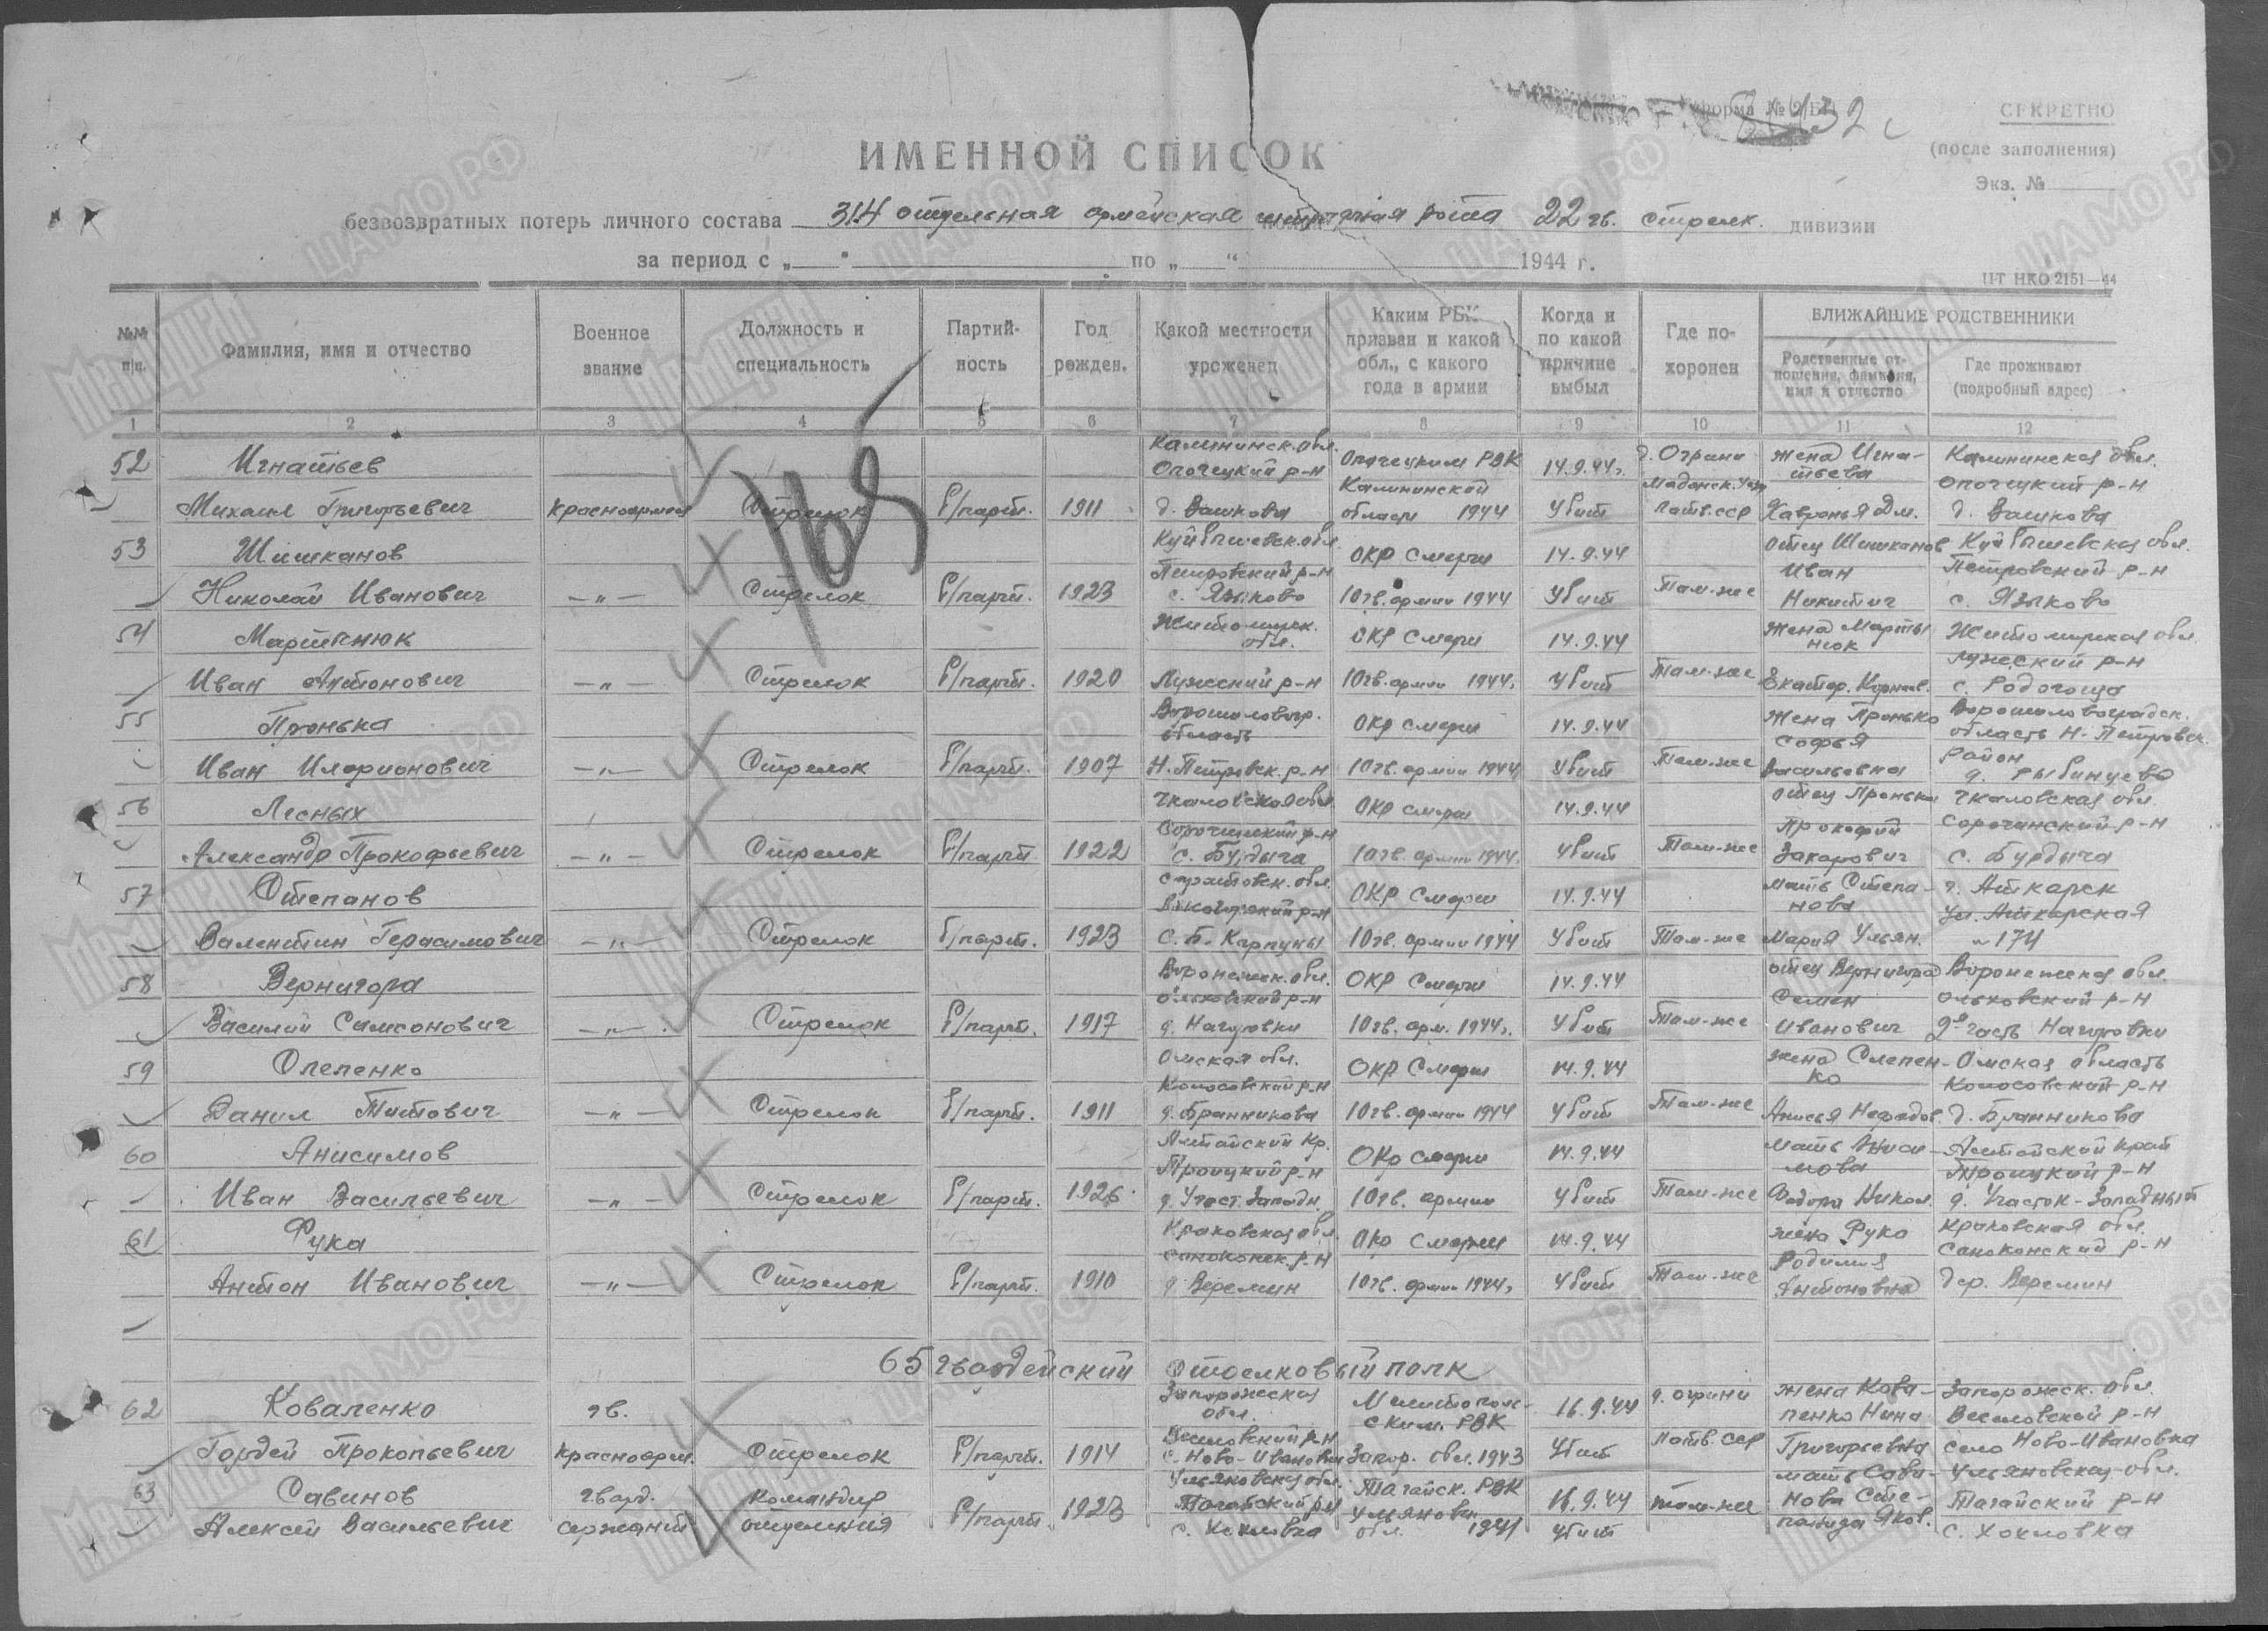 Форма № 2/БП
432 с
СЕКРЕТНО
(после заполнения)
Экз. №
ИМЕННОЙ СПИСОК
безвозвратных потерь личного состава 314 отдельная армейская штрафная рота 22 гв. стрелк. дивизии
за период с „ “ по „ “ 1944 г.
ЦТ НКО 2151—44
№№ п/п. Фамилия, имя и отчество Военное звание Должность и специальность Партийность Год рожден. Какой местности уроженец Каким РВК призван и какой обл., с какого года в армии Когда и по какой причине выбыл Где похоронен БЛИЖАЙШИЕ РОДСТВЕННИКИ
Родственные отношения, фамилия, имя и отчество Где проживают (подробный адрес)
1 2 3 4 5 6 7 8 9 10 11 12
165
52 Игнатьев Калининск. обл. Опочецкий р-н Опочецким РВК Калининской 14.9.44г. д. Ограни Мадонск. уезд жена Игнатьева Калининская обл. Опочецкий р-н
Михаил Григорьевич красноармеец Стрелок б/парт. 1911 д. Вашкова области 1944 Убит Латв. сср Хавронья Дм. д. Вашкова
53 Шишканов Куйбышевск. обл. Петровский р-н ОКР Смерш 14.9.44 отец Шишканов Иван Куйбышевская обл. Петровский р-н
Николай Иванович —„— Стрелок б/парт. 1923 с. Языково 10 гв. армии 1944 Убит Там-же Никитич с. Языково
54 Мартынюк Житомирск. обл. ОКР Смерш 14.9.44 жена Мартынюк Житомирская обл.
Иван Антонович —„— Стрелок б/парт. 1920 10 гв. армии 1944г. Убит Там-же Екатер. с.
55 Пронька Ворошиловгр. область ОКР Смерш 14.9.44 жена Пронько Софья Ворошиловградск. область Н-Петровск.
Иван Иларионович —„— Стрелок б/парт. 1907 Н. Петровск. р-н 10 гв. армии 1944 Убит Там-же Васильевна район д.
56 Лесных Чкаловская обл. Сорочинский р-н ОКР Смерш 14.9.44 отец Прокофий Чкаловская обл. Сорочинский р-н
Александр Прокофьевич —„— Стрелок б/парт. 1922 с. 10 гв. армии 1944 Убит Там-же Захарович с.
57 Степанов Саратовск. обл. ОКР Смерш 14.9.44 мать Степанова г. Аткарск ул. Аткарская
Валентин Герасимович —„— Стрелок б/парт. 1923 с. Б. Карпуны 10 гв. армии 1944 Убит Там-же Мария Ульян. 174
58 Вернигора Воронежск. обл. Ольховский р-н ОКР Смерш 14.9.44 отец Вернигора Семен Воронежская обл. Ольховский р-н
Василий Самсонович —„— Стрелок б/парт. 1917 д. 10 гв. арм. 1944г. Убит Там-же Иванович 2я часть
59 Слепенко Омская обл. Колосовский р-н ОКР Смерш 14.9.44 жена Слепенко Омская область Колосовский р-н
Данил Титович —„— Стрелок б/парт. 1911 д. Бранникова 10 гв. армии 1944 Убит Там-же Анисья д. Бранникова
60 Анисимов Алтайский Кр. Троицкий р-н ОКР Смерш 14.9.44 мать Анисимова Алтайский край Троицкий р-н
Иван Васильевич —„— Стрелок б/парт. 1926 д. Участ. Западн. 10 гв. армии Убит Там-же Федора Никол. д. Участок-Западный
61 Фука Краковская обл. ОКР Смерш 14.9.44 жена Фука Краковская обл. р-н
Антон Иванович —„— Стрелок б/парт. 1910 д. Веремин 10 гв. армии 1944г. Убит Там-же Антоновна дер. Веремин
65 гвардейский стрелковый полк
62 Коваленко гв. Запорожская обл. Мелитопольским РВК 16.9.44 д. Ограни жена Коваленко Нина Запорожск. обл. Веселовский р-н
Гордей Прокопьевич красноарм. Стрелок б/парт. 1914 Веселовский р-н с. Ново-Ивановка Запор. обл. 1943 Убит Латв. сср Григорьевна село Ново-Ивановка
63 Савинов гвард. командир Ульяновская обл. Тагайский р-н Тагайск. РВК 16.9.44 там-же мать Савинова Ульяновская обл. Тагайский р-н
Алексей Васильевич сержант отделения б/парт. 1923 с. Хохловка Ульяновск. обл. 1941 Убит Степанида Яков. с. Хохловка
Мемориал
ЦАМО РФ